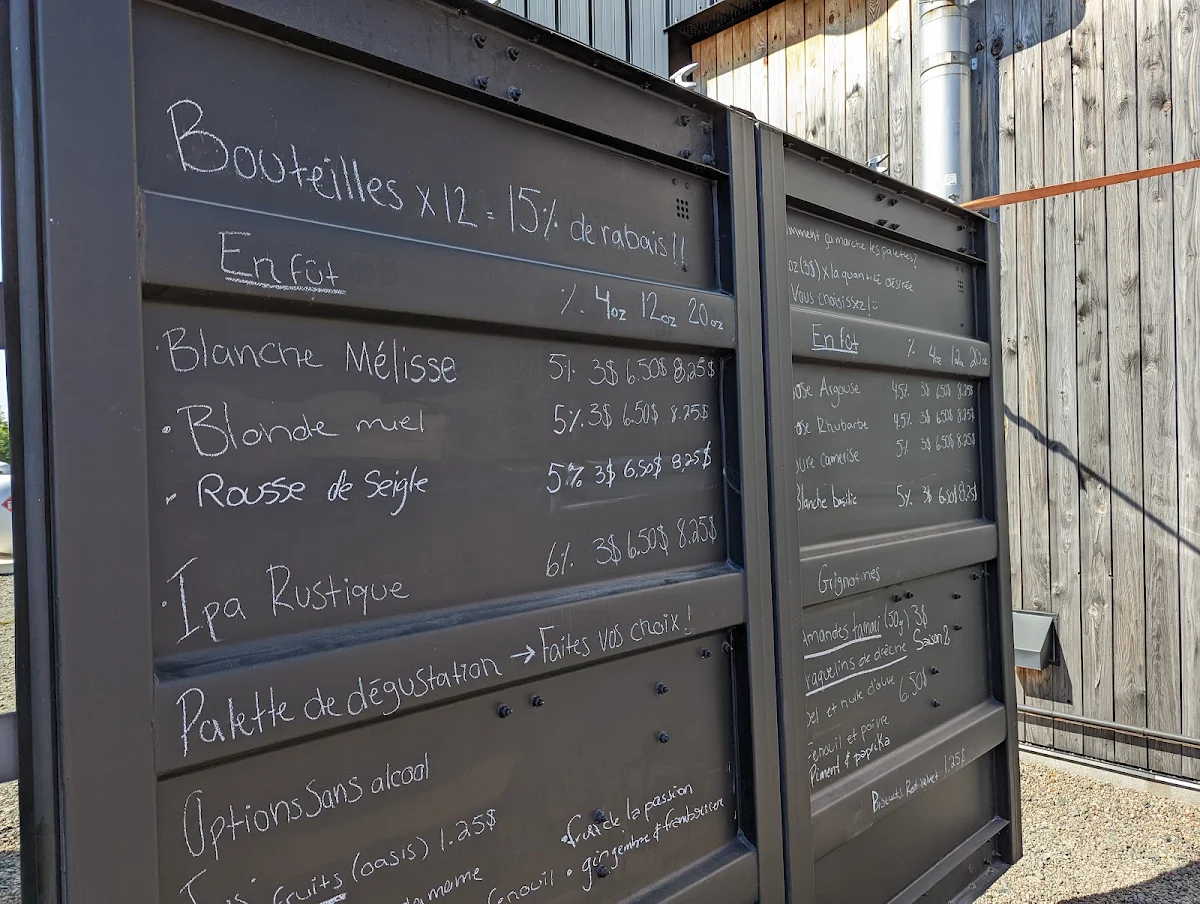 Bouteilles x12 = 15% de rabais!!
En fût
% 4oz 12oz 20oz
Blanche Mélisse 5% 3$ 6.50$ 8,25$
Blonde miel 5% 3$ 6.50$ 8.25$
Rousse de Seigle 5% 3$ 6,50$ 8,25$
Ipa Rustique 6% 3$ 6.50$ 8.25$
Palette de dégustation → Faites vos choix!
Options Sans alcool
fruits (oasis) 1.25$
fruit de la passion
gingembre & framboisier
mment ça marche les palettes?
oz (3$) x la quantité désirée
Vous choisissez! :)
En fût % 4oz 12oz 20oz
ose Argouse 4.5% 3$ 6.50$ 8.25$
ose Rhubarbe 4.5% 3$ 6.50$ 8.25$
ure camerise 5% 3$ 6.50$ 8.25$
Blanche basilic 5% 3$ 6.50$ 8.25$
Grignotines
Amandes tamari (50g) 3$
raquelins de drêche Saison 2
Sel et huile d'olive 6.50$
Fenouil et poivre
Piment & paprika
Biscuits Red Velvet 1.25$